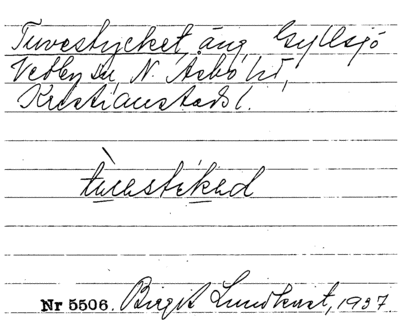 Tuvestycket, äng, Gyllsjö
Vedby sn, N. Åsbo hd,
Kristianstads l.
tùvestikəd
Nr 5506. Birgit Lundkvist, 1937